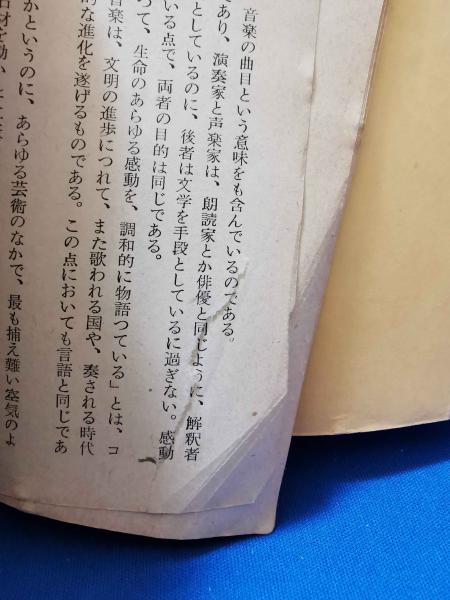 音楽の曲目という意味をも含んでいるのである。
であり、演奏家と声楽家は、朗読家とか俳優と同じように、解釈者
としているのに、後者は文学を手段としているに過ぎない。感動
いる点で、両者の目的は同じである。
つて、生命のあらゆる感動を、調和的に物語つている」とは、コ
音楽は、文明の進歩につれて、また歌われる国や、奏される時代
的な進化を遂げるものである。この点においても言語と同じであ
かというのに、あらゆる芸術のなかで、最も捕え難い空気のよ